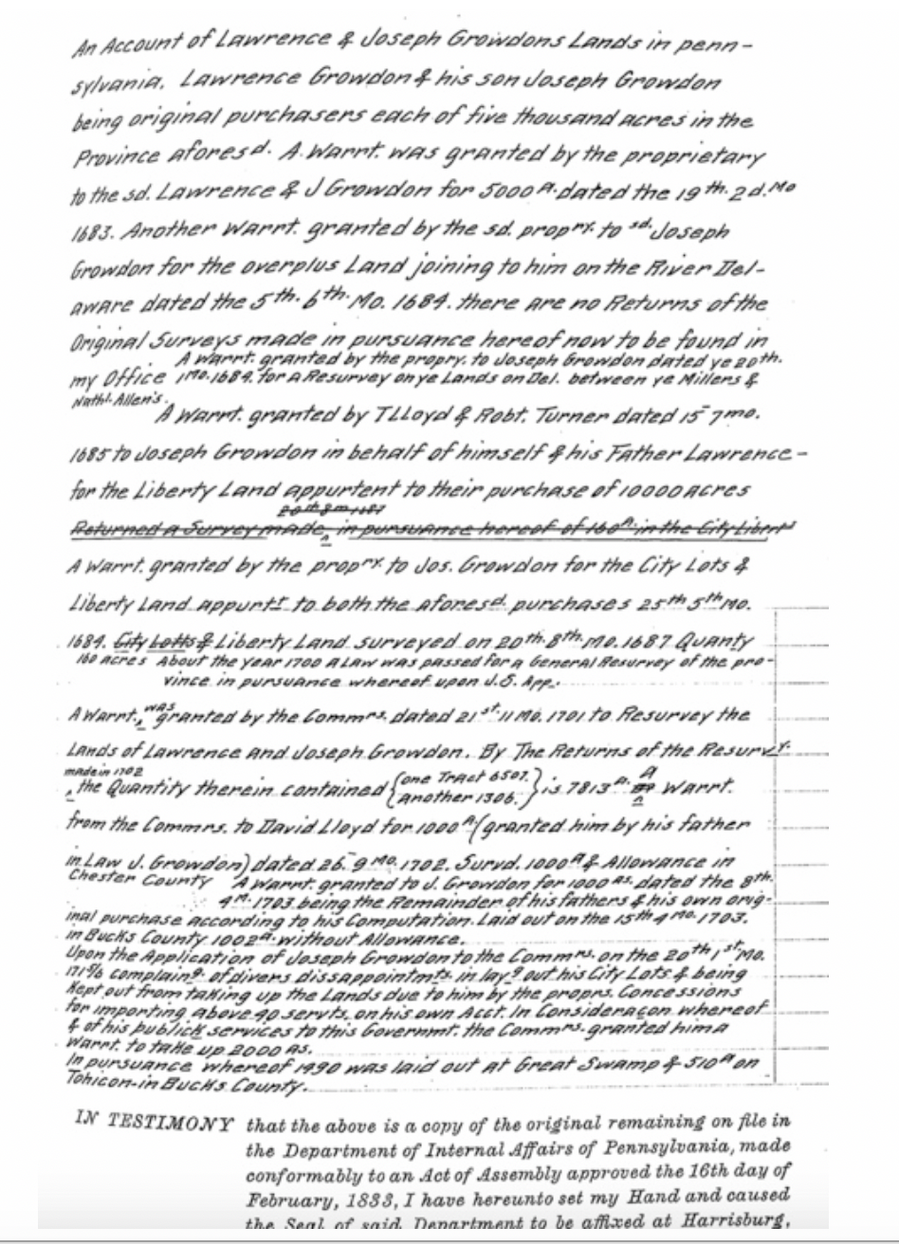 An Account of Lawrence & Joseph Growdons Lands in penn-
sylvania. Lawrence Growdon & his son Joseph Growdon
being original purchasers each of five thousand acres in the
Province aforesd. A Warrt. was granted by the proprietary
to the sd. Lawrence & J Growdon for 5000 A. dated the 19th. 2d. Mo
1683. Another Warrt. granted by the sd. propry. to sd. Joseph
Growdon for the overplus Land joining to him on the River Del-
aware dated the 5th. 6th. Mo. 1684. there are no Returns of the
Original Surveys made in pursuance hereof now to be found in
A Warrt. granted by the propry. to Joseph Growdon dated ye 20th.
my Office 1 Mo. 1684. for a Resurvey on ye Lands on Del. between ye Millers &
Nathl. Allen's.
A Warrt. granted by T LLoyd & Robt. Turner dated 15 7mo.
1685 to Joseph Growdon in behalf of himself & his Father Lawrence-
for the Liberty Land appurtent to their purchase of 10000 Acres
20th 8m 1687
Returned a Survey made in pursuance hereof of 160 A. in the City Libert
A Warrt. granted by the propry. to Jos. Growdon for the City Lots &
Liberty Land appurtt to both the aforesd. purchases 25th 5th Mo.
1684. City Lotts & Liberty Land surveyed on 20th. 8th. Mo. 1687 Quanty
160 acres About the year 1700 A Law was passed for a General Resurvey of the pro-
vince in pursuance whereof upon J.G. App.
A Warrt. was granted by the Commrs. dated 21st. 11 Mo. 1701 to Resurvey the
Lands of Lawrence and Joseph Growdon. By The Returns of the Resurvy.
made in 1702
the Quantity therein contained {one Tract 6507. another 1306.} is 7813 A. A Warrt.
from the Commrs. to David Lloyd for 1000 A (granted him by his father
in Law J. Growdon) dated 26. 9 Mo. 1702. Survd. 1000 A & Allowance in
Chester County A Warrt. granted to J. Growdon for 1000 as. dated the 8th.
4 M. 1703 being the Remainder of his fathers & his own orig-
inal purchase according to his Computation. Laid out on the 15th 4 Mo. 1703.
in Bucks County 1002 A. without Allowance.
Upon the Application of Joseph Growdon to the Commrs. on the 20th 1st Mo.
complaing. of divers dissappointmts. in layg out his City Lots & being
Kept out from taking up the Lands due to him by the proprs. Concessions
for importing above 40 servts. on his own Acct. In Consideracon whereof
& of his publick services to this Governmt. the Commrs. granted him a
Warrt. to take up 2000 As.
In pursuance whereof 1490 was laid out at Great Swamp & 510 A on
Tohicon-in Bucks County.
IN TESTIMONY that the above is a copy of the original remaining on file in
the Department of Internal Affairs of Pennsylvania, made
conformably to an Act of Assembly approved the 16th day of
February, 1833, I have hereunto set my Hand and caused
the Seal of said Department to be affixed at Harrisburg,